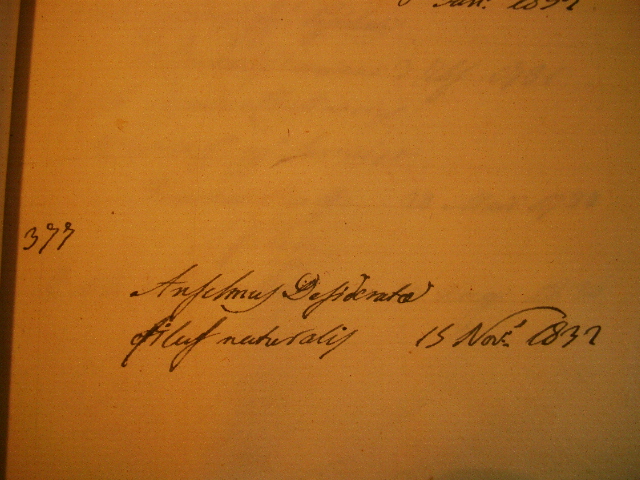 Jan: 1832
377
Anselmus Desideratae
filus naturalis 15 Nov: 1832